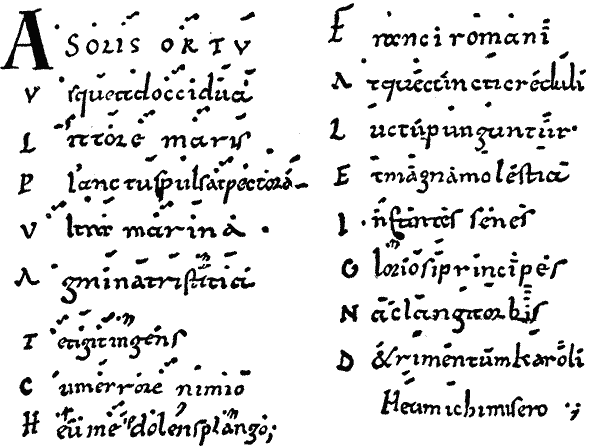 A SOLIS ORTV
Vsquead occidua
Littore maris
Planctus pulsat pectora
Vltra marina
Agmina tristitia
Tetigit ingens
Cum errore nimio
Heu me dolens plango;
Franci romani
Atque cuncti creduli
Luctu punguntur.
Et magna molestia
Infantes senes
Gloriosi principes
Na clangit orbis
D&rimentum karoli
Heu michi misero ;